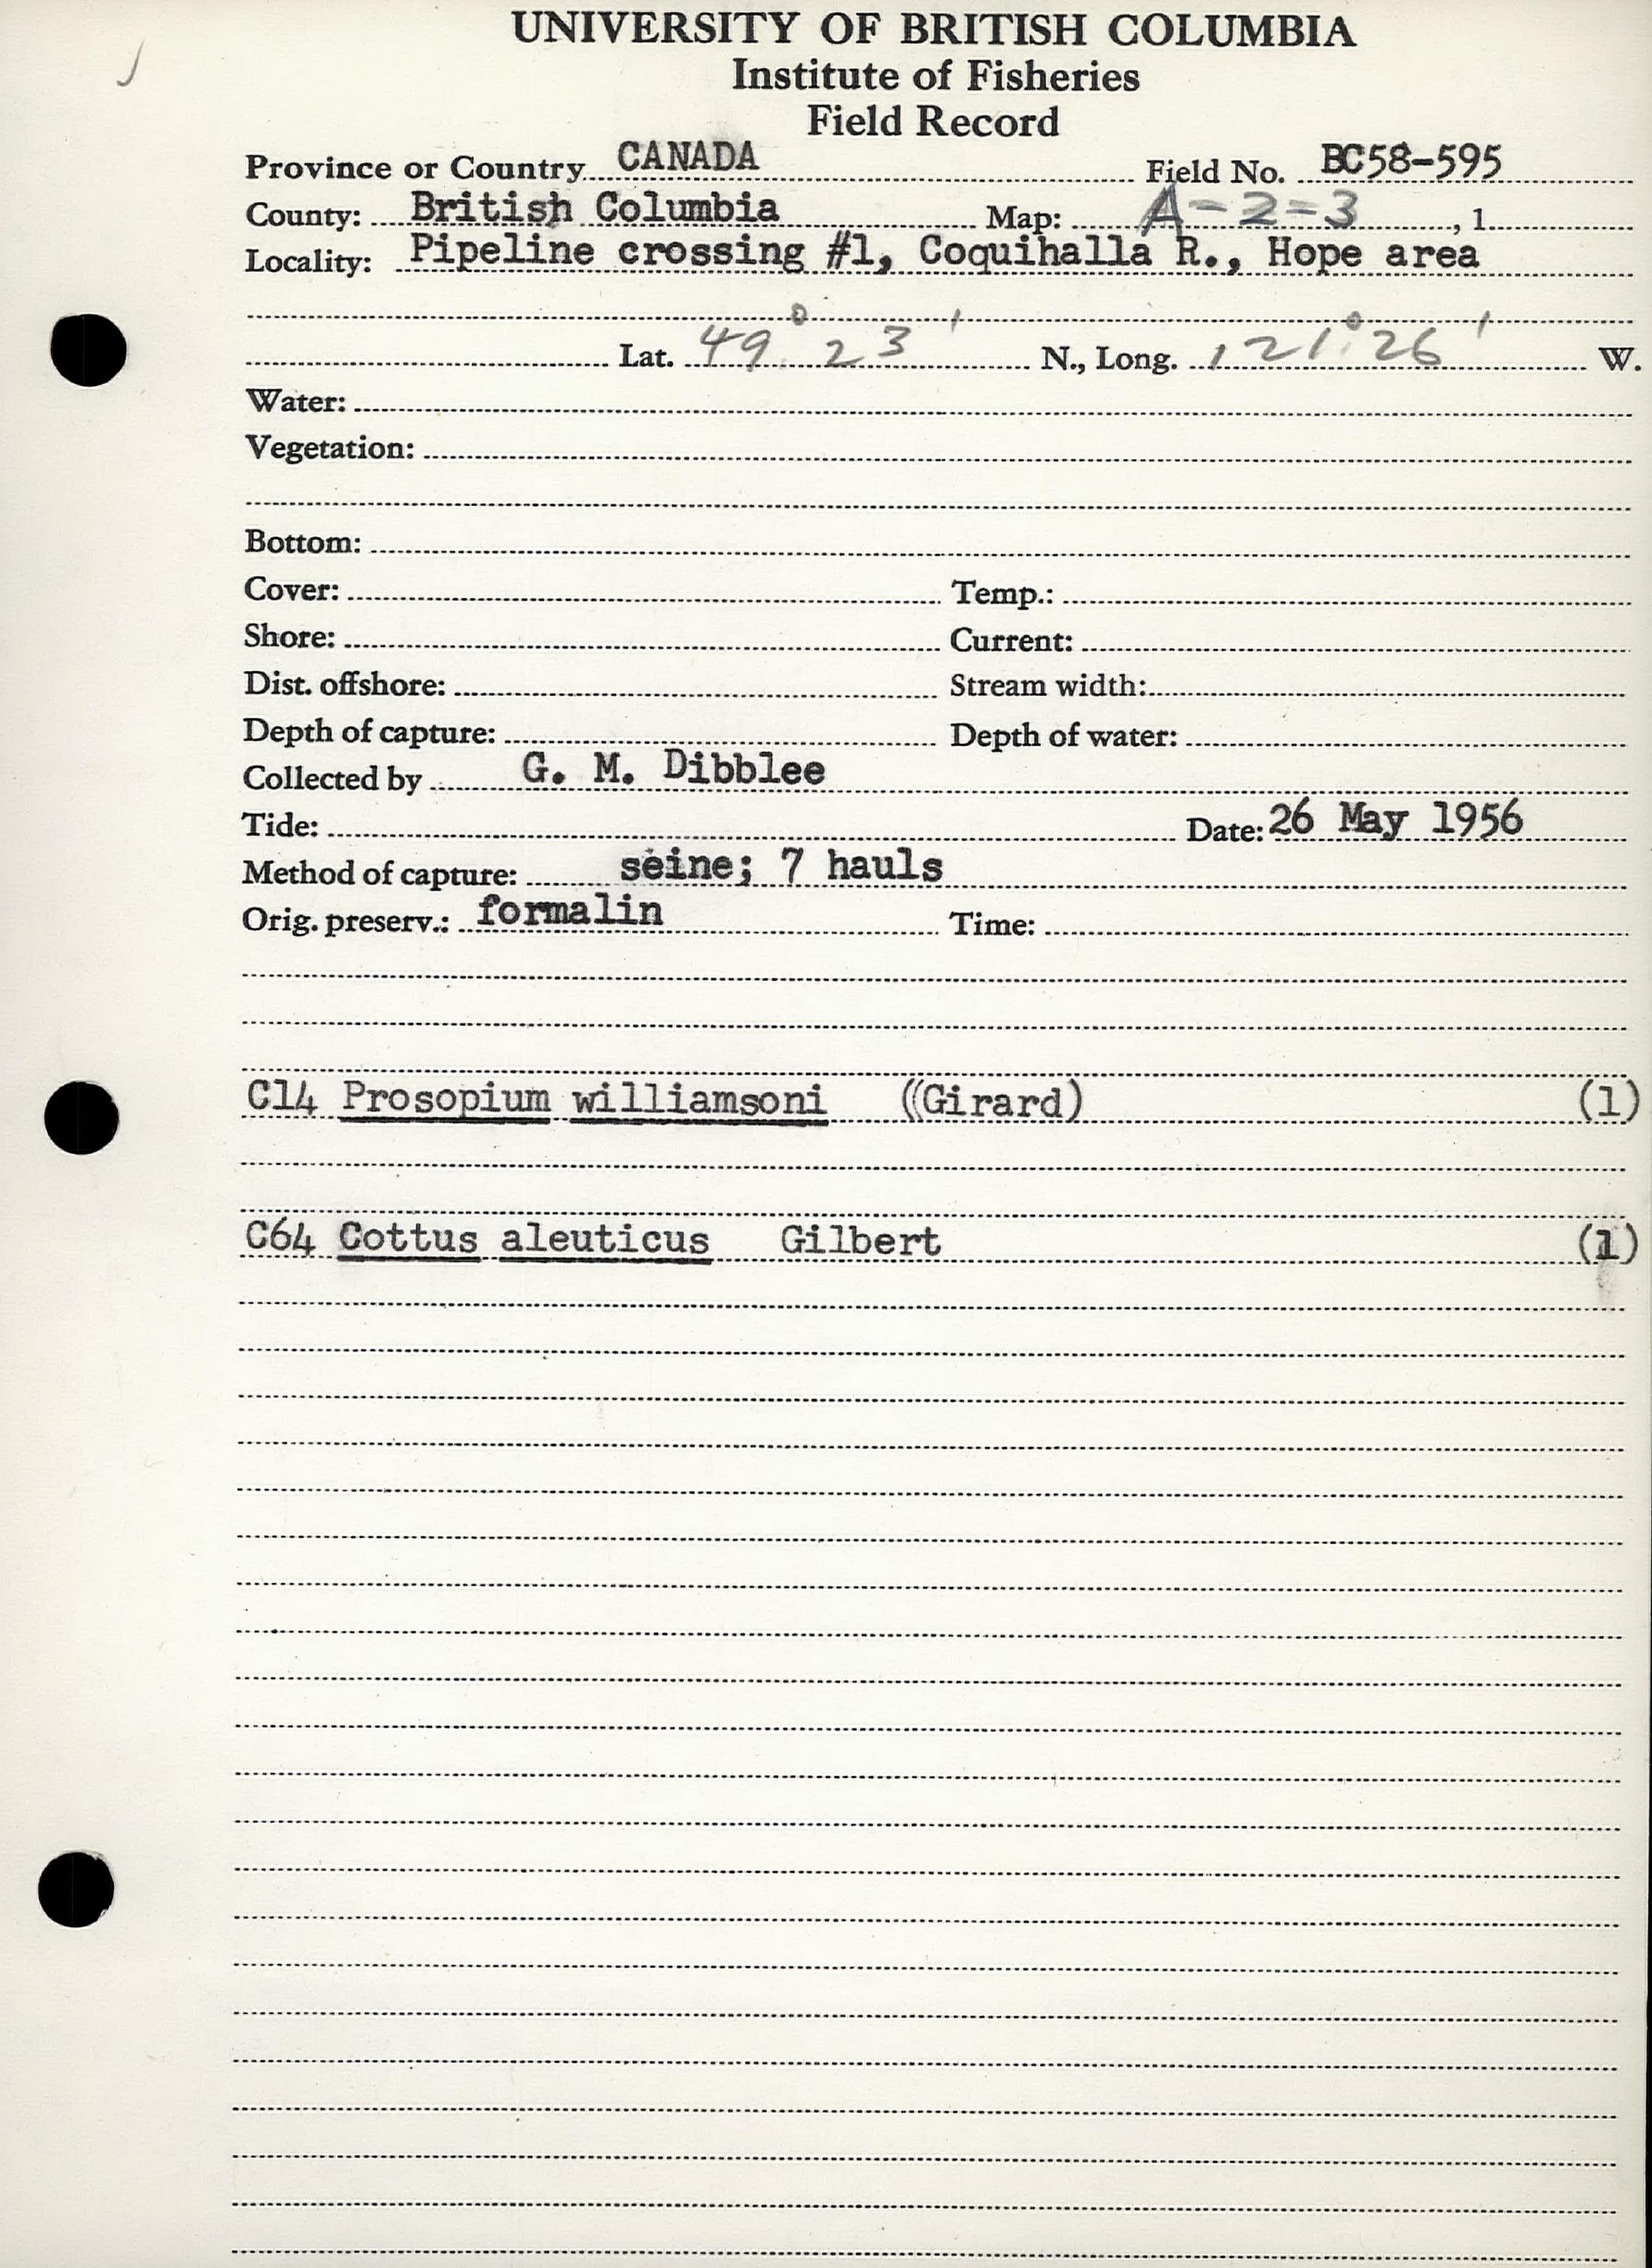 UNIVERSITY OF BRITISH COLUMBIA
Institute of Fisheries
Field Record
Province or Country CANADA Field No. BC58-595
County: British Columbia Map: A-2-3, 1
Locality: Pipeline crossing #1, Coquihalla R., Hope area
Lat. 49° 23' N., Long. 121° 26' W.
Water:
Vegetation:
Bottom:
Cover: Temp.:
Shore: Current:
Dist. offshore: Stream width:
Depth of capture: Depth of water:
Collected by G. M. Dibblee
Tide: Date: 26 May 1956
Method of capture: seine; 7 hauls
Orig. preserv.: formalin Time:
C14 Prosopium williamsoni ((Girard) (1)
C64 Cottus aleuticus Gilbert (1)